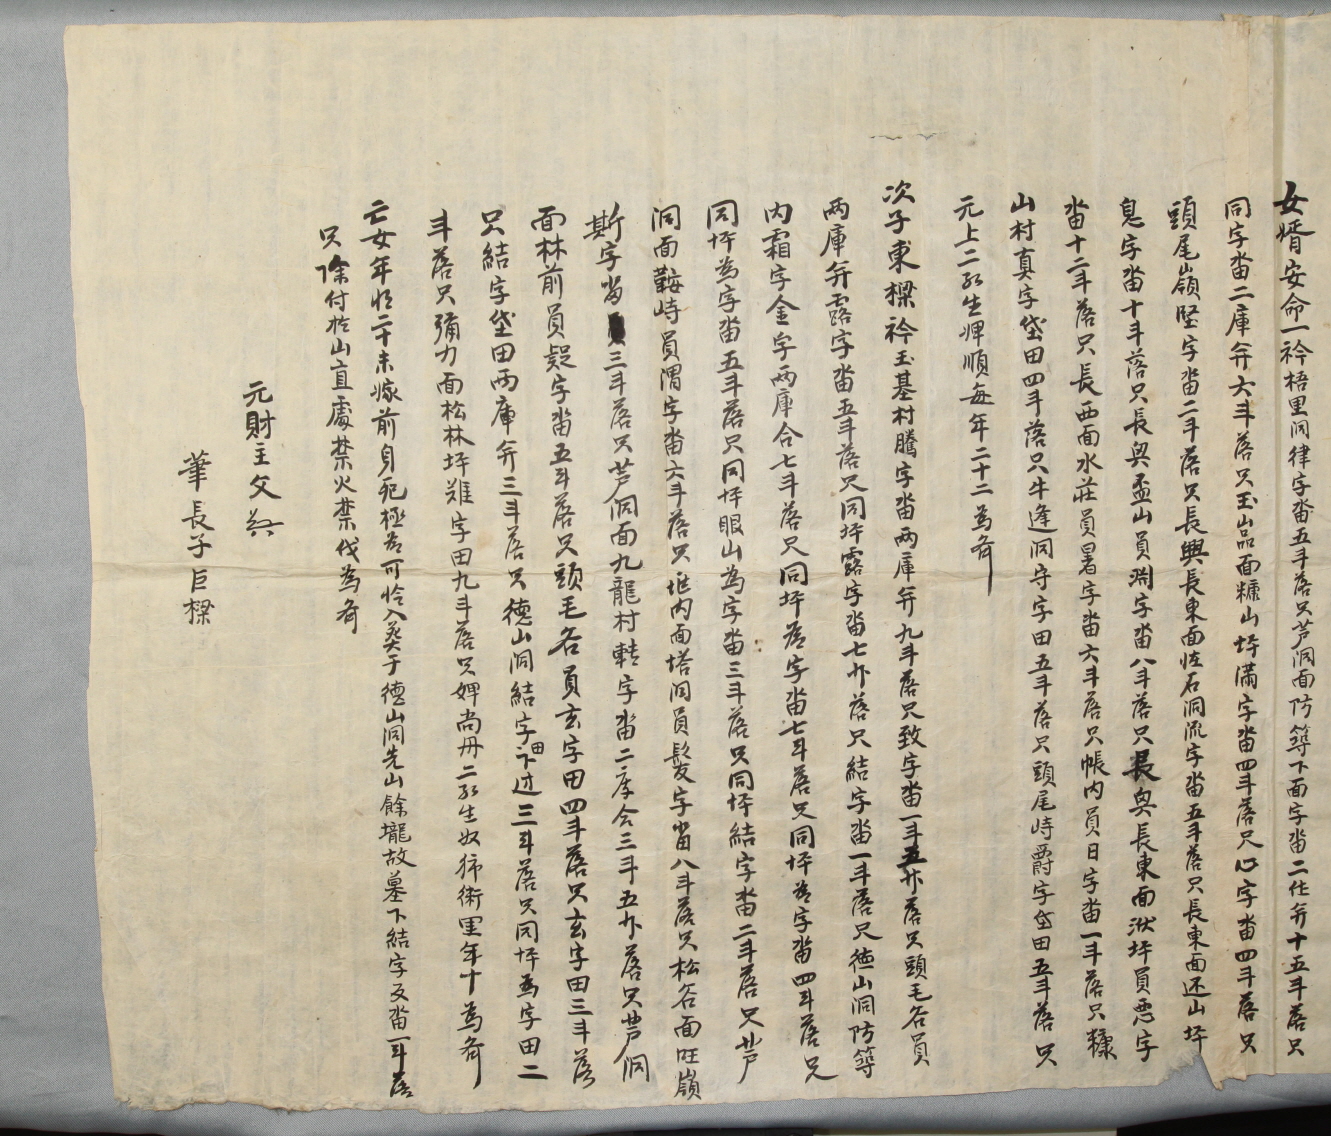 女婿安命一衿梧里同律字畓五斗落只芦洞面防築下面字畓二作幷十五斗落只
同字畓二庫幷六斗落只玉山品面糠山坪滿字畓四斗落只心字畓四斗落只
頭尾嶺堅字畓二斗落只長興長東面怪石洞流字畓五斗落只長東面还山坪
息字畓十斗落只長興盃山員渕字畓八斗落只長興長東面洑坪員悪字
畓十二斗落只長西面水庄員暑字畓六斗落只帳內員日字畓一斗落只糠
山村真字垈田四斗落只牛逢洞守字田五斗落只頭尾峙爵字垈田五斗落只
元上二所生婢順每年二十二為斉
次子東樑衿玉基村騰字畓兩庫幷九斗落只致字畓一斗五升落只頭毛谷員
兩庫幷露字畓五斗落只同坪露字畓七升落只結字畓一斗落只徳山洞防築
內霜字金字兩庫合七斗落只同坪為字畓七斗落只同坪為字畓四斗落只
同坪為字畓五斗落只同坪眼山為字畓三斗落只同坪結字畓二斗落只芦
洞面鞍峙員渭字畓六斗落只內面塔洞員髮字畓八斗落只松谷面旺嶺
斯字畓三斗落只芦洞面九龍村轉字畓二庫合三斗五升落只芦洞
面林前員疑字畓五斗落只頭毛谷員玄字田四斗落只玄字田三斗落
只結字垈田兩庫幷三斗落只徳山洞結字田下边三斗落只同坪為字田二
斗落只彌力面松林坪雖字田九斗落只婢尚丹二所生奴獅衝里年十為斉
亡女年將二十未嫁前身死極為可怜入葬于徳山洞先山餘壠故墓下結字反畓一斗落
只除付於山直處禁火禁伐為斉
元財主父
筆長子巨樑